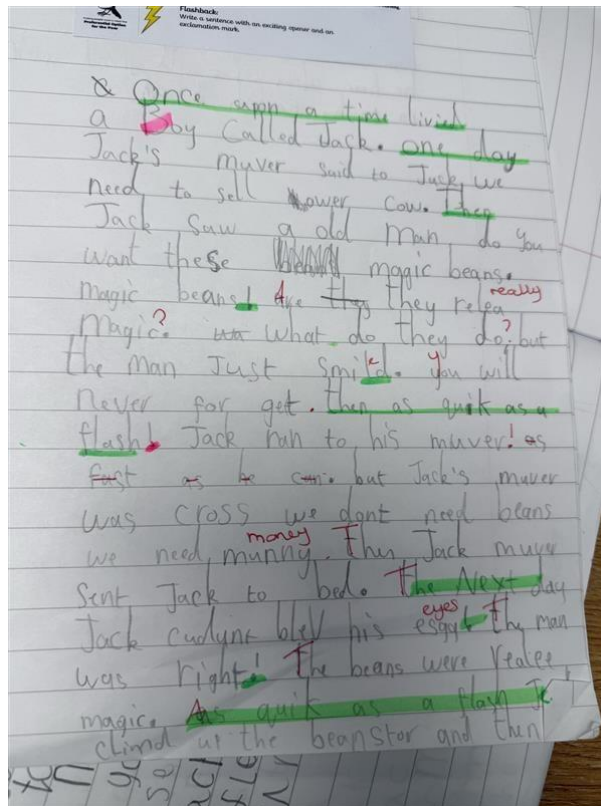 Flashback:
Write a sentence with an exciting opener and an
exclamation mark.
& Once upon a time livied
a Boy Called Jack. one day
Jack's muver said to Jack we
need to sell ower cow. Then
Jack saw a old man do you
want these magic beans.
really
magic beans! Are they they relea
magic? what do they do? but
the man Just smiled. you will
never for get. then as quik as a
flash! Jack ran to his muver! as
fast as he can. but Jack's muver
was cross we dont need beans
money
we need munny. Then Jack muver
sent Jack to bed. The Next day
eyes
Jack cudynt blev his The man
was right! The beans were realee
magic. As quik as a flash
climd up the beanstor and then